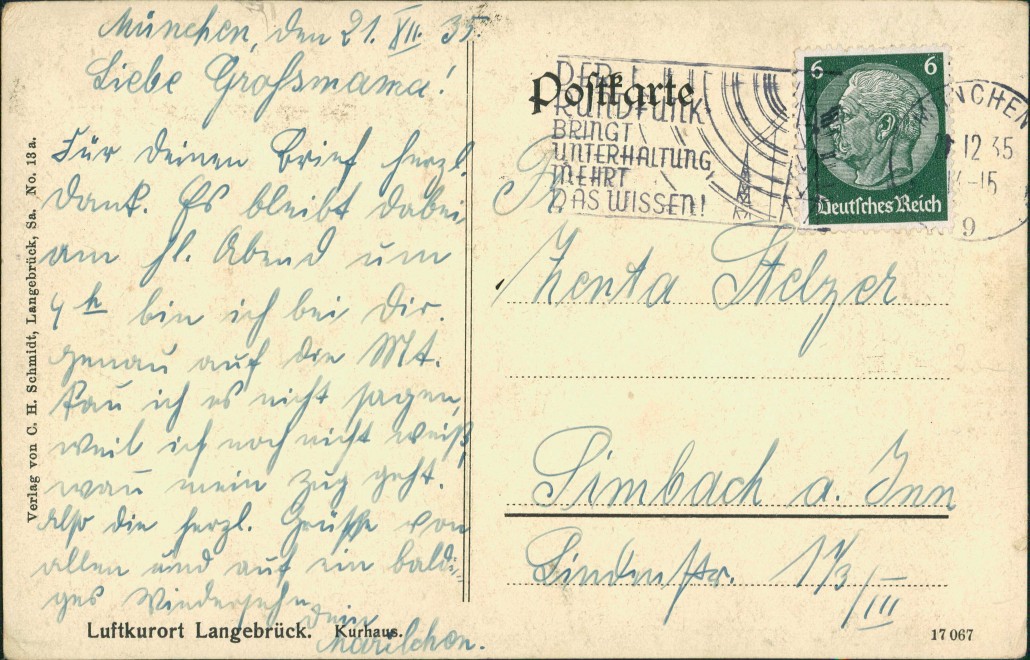 München, den 21. XII. 35
Liebe Grossmama!
Für deinen Brief herzl.
Dank. Es bleibt dabei
am hl. Abend um
4 h bin ich bei Dir.
genau auf die Mt.
kan ich es nicht sagen,
weil ich noch nicht weiß,
wan mein Zug geht.
Also die herzl. Grüsse von
allen und auf ein baldi-
ges Wiedersehn
Dein
Verlag von C. H. Schmidt, Langebrück, Sa. No. 13 a.
Luftkurort Langebrück. Kurhaus.
Postkarte
DER
RUNDFUNK
BRINGT
UNTERHALTUNG
MEHRT
DAS WISSEN!
6 6
Deutsches Reich
MÜNCHEN
12 35
-15
9
Fr.
Zenta Stelzer
Simbach a. Inn
Lindenstr. 17/3/III
17 067